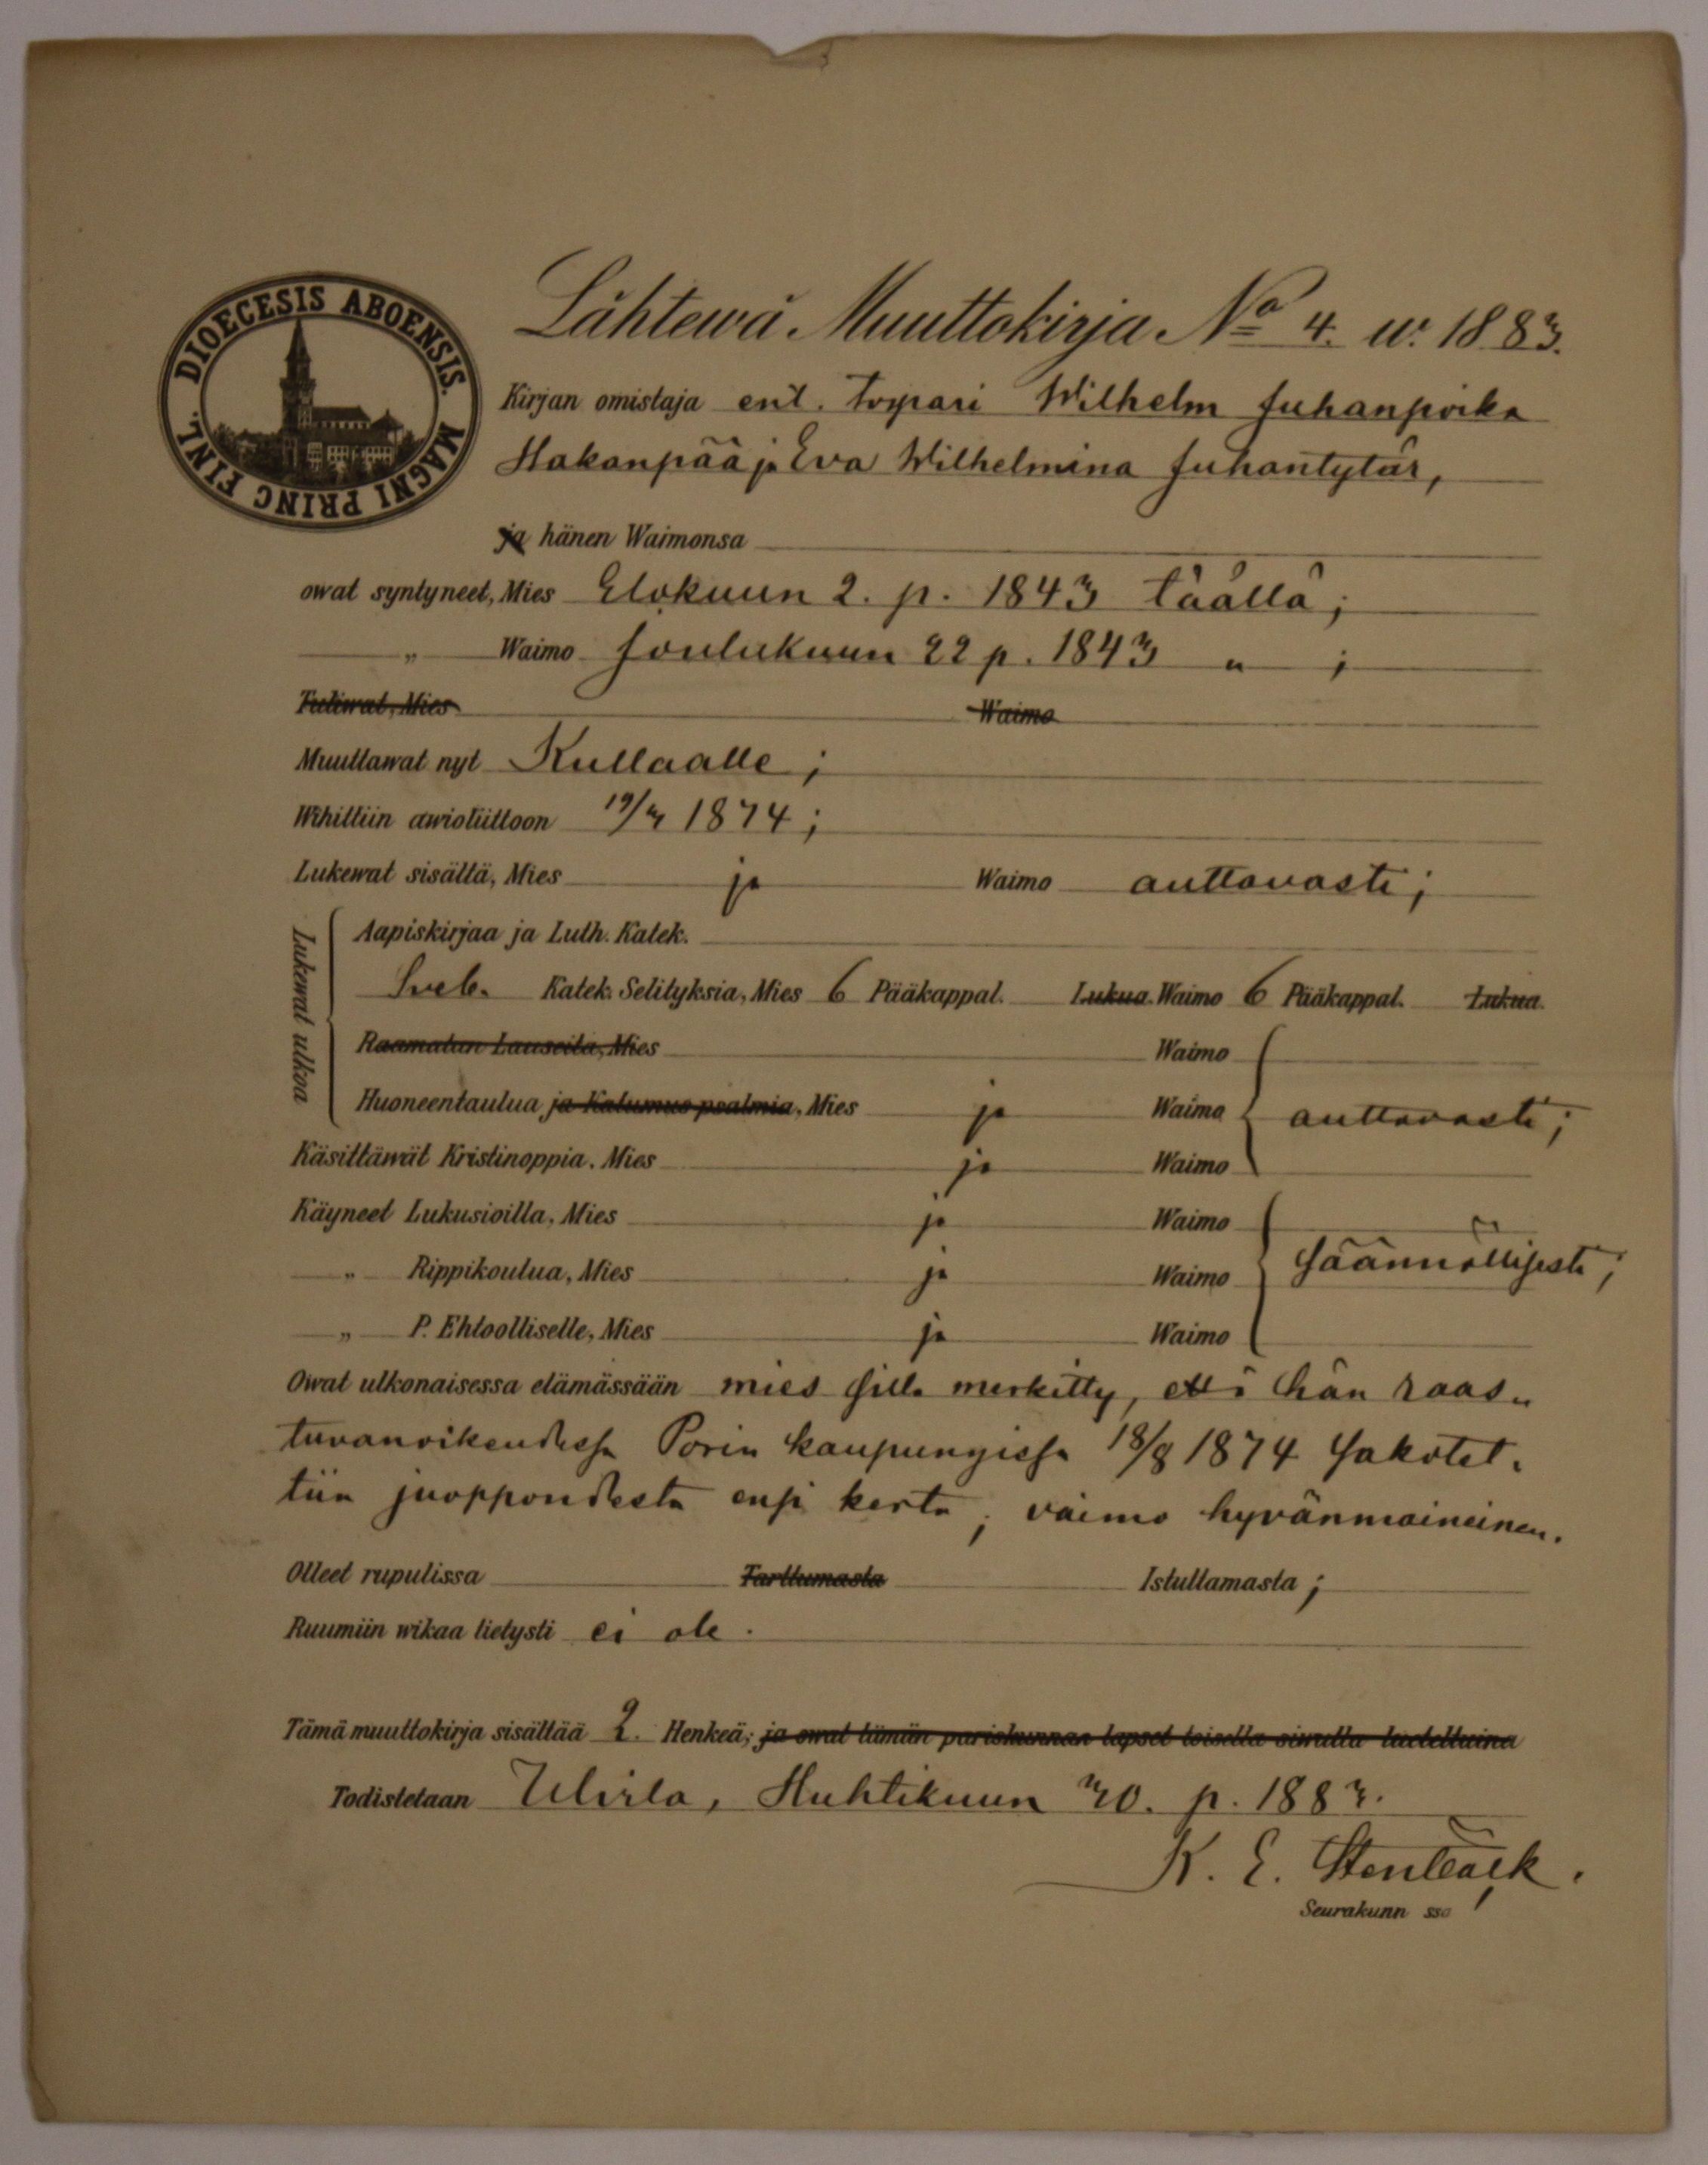 DIOECESIS ABOENSIS. MAGNI PRINC FINL.
Lähtewä Muuttokirja No 4. w. 1883.
Kirjan omistaja ent. torpari Wilhelm Juhanpoika
Hakanpää ja Eva Wilhelmina Juhantytär,
ja hänen Waimonsa
owat syntyneet, Mies Elokuun 2. p. 1843 täällä;
„ Waimo Joulukuun 22 p. 1843 „ ;
Tuliwat, Mies Waimo
Muuttawat nyt Kullaalle;
Wihittiin awioliittoon 19/4 1874;
Lukewat sisältä, Mies ja Waimo auttavasti;
Lukewat ulkoa
Aapiskirjaa ja Luth. Katek.
Sveb. Katek. Selityksia, Mies 6 Pääkappal. Lukua. Waimo 6 Pääkappal. Lukua.
Raamatun Lauseita, Mies Waimo
Huoneentaulua ja Katumus psalmia, Mies ja Waimo auttavasti;
Käsittäwät Kristinoppia. Mies ja Waimo
Käyneet Lukusioilla, Mies ja Waimo
„ Rippikoulua, Mies ja Waimo säännöllisesti;
„ P. Ehtoolliselle, Mies ja Waimo
Owat ulkonaisessa elämässään mies sillä merkitty, että hän raas-
tuvanoikeudessa Porin kaupungissa 18/8 1874 sakotet-
tiin juoppoudesta ensi kerta; vaimo hyvänmaineinen.
Olleet rupulissa Tarttumasta Istuttamasta;
Ruumiin wikaa tietysti ei ole.
Tämä muuttokirja sisältää 2. Henkeä; ja owat tämän pariskunnan lapset toisella siwulla lueteltuina
Todistetaan Ulvila, Huhtikuun 30. p. 1883.
K. E. Stenbäck.
Seurakunn ssa